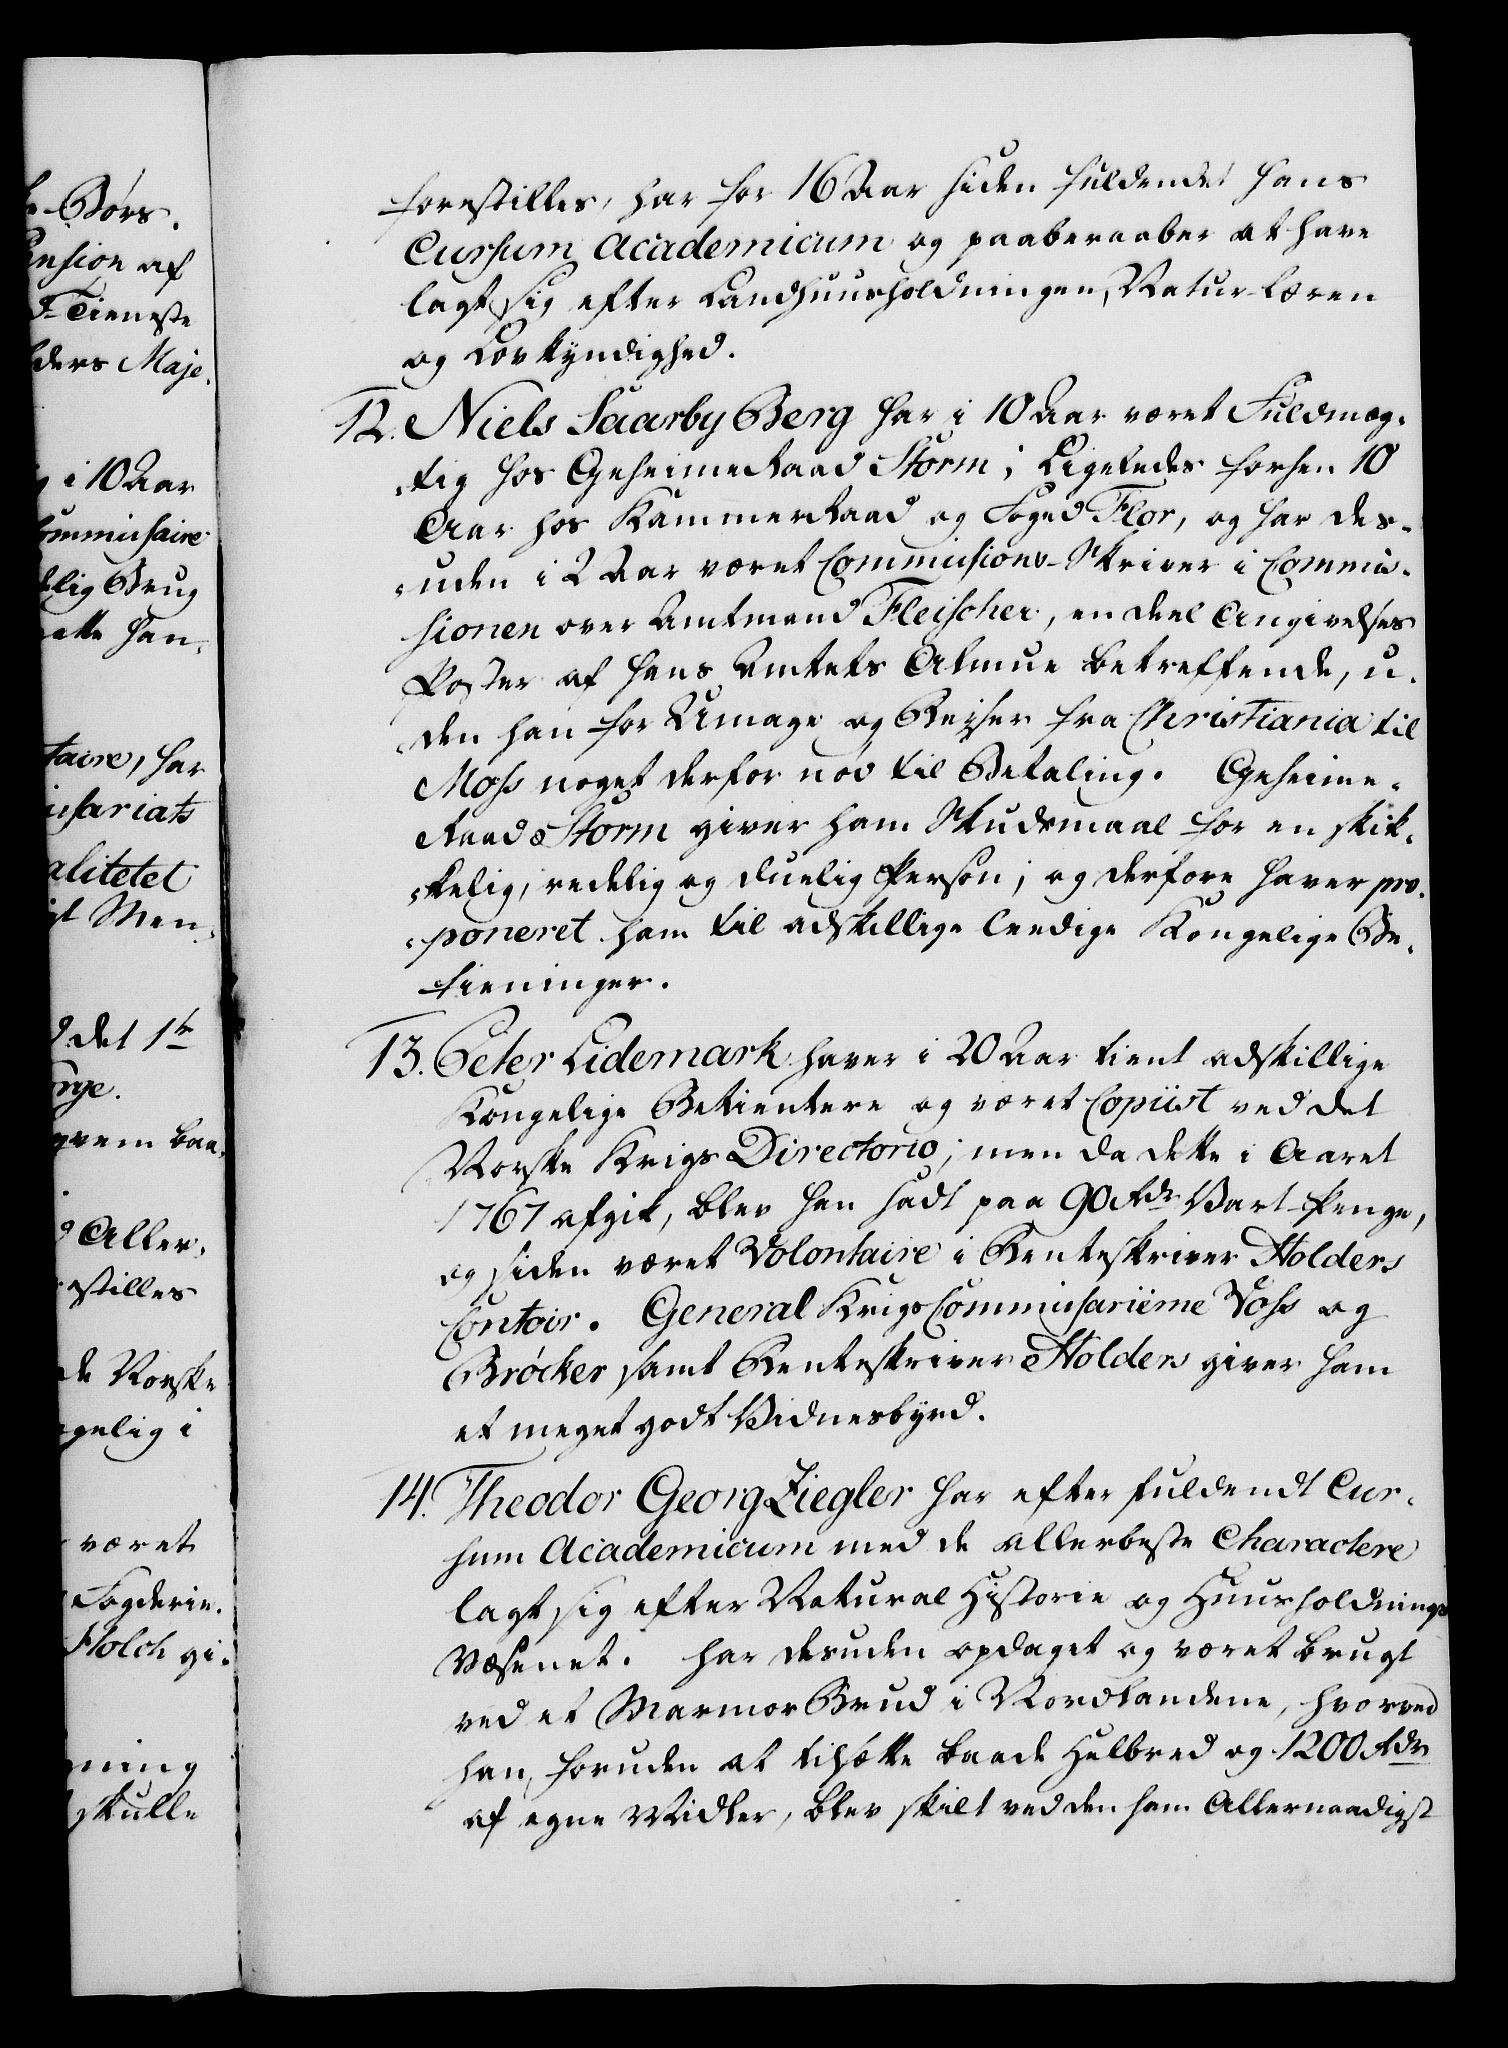 e Børs.
ension af
d Tieneste
lders Maje-
i 10 Aar
ommissaire
delig Brug
ette Han-
taire, har
issariats
alitetet
gt Men-
d det 1te
orge.
gnem baa-
d Aller-
estilles
de Norske
gelig i
været
Fogderie.
Holch gi-
ning
skulle
forestilles, har for 16 Aar siden fuldendet hans
Cursum Academicum og paaberaaber at have
lagt sig efter Landhuusholdningen, Natur-Læren
og Lovkyndighed.
12. Niels Saarby Berg har i 10 Aar været Fuldmæg-
tig hos GeheimeRaad Storm; Ligeledes forhen 10
Aar hos KammerRaad og Foged Flor, og har des-
uden i 2 Aar været Commissions-Skriver i Commis-
sionen over Amtmand Fleischer, en deel Angivelses
Poster af hans Amtets Almue betreffende, u-
den han for Umage og Reyser fra Christiania til
Moss noget derfor nød til Betaling. Geheime-
Raad Storm giver ham Skudsmaal for en skik-
kelig, redelig og duelig Person; og derfore haver pro-
poneret ham til adskillige leedige Kongelige Be-
tieninger.
13. Peter Lidemark haver i 20 Aar tient adskillige
Kongelige Betientere og været Copiist ved det
Norske Krigs Directorio; men da dette i Aaret
1767 afgik, blev han sadt paa 90 Rdr Vart-Penge,
og siden været Volontaire i Renteskriver Holders
Contoir. General KrigsCommissairerne Voss og
Bröcker samt Renteskriver Holders giver ham
et meget godt Vidnesbyrd.
14. Theodor Georg Ziegler har efter fuldendt Cur-
sum Academicum med de allerbeste Charactere
lagt sig efter Natural Historie og Huusholdnings
Væsenet. har desuden opdaget og været brugt
ved et MarmorBrud i Nordlandene, hvorved
han, foruden at tilsætte baade Helbred og 1200 Rdr
af egne Midler, blev skilt ved den ham Allernaadigst